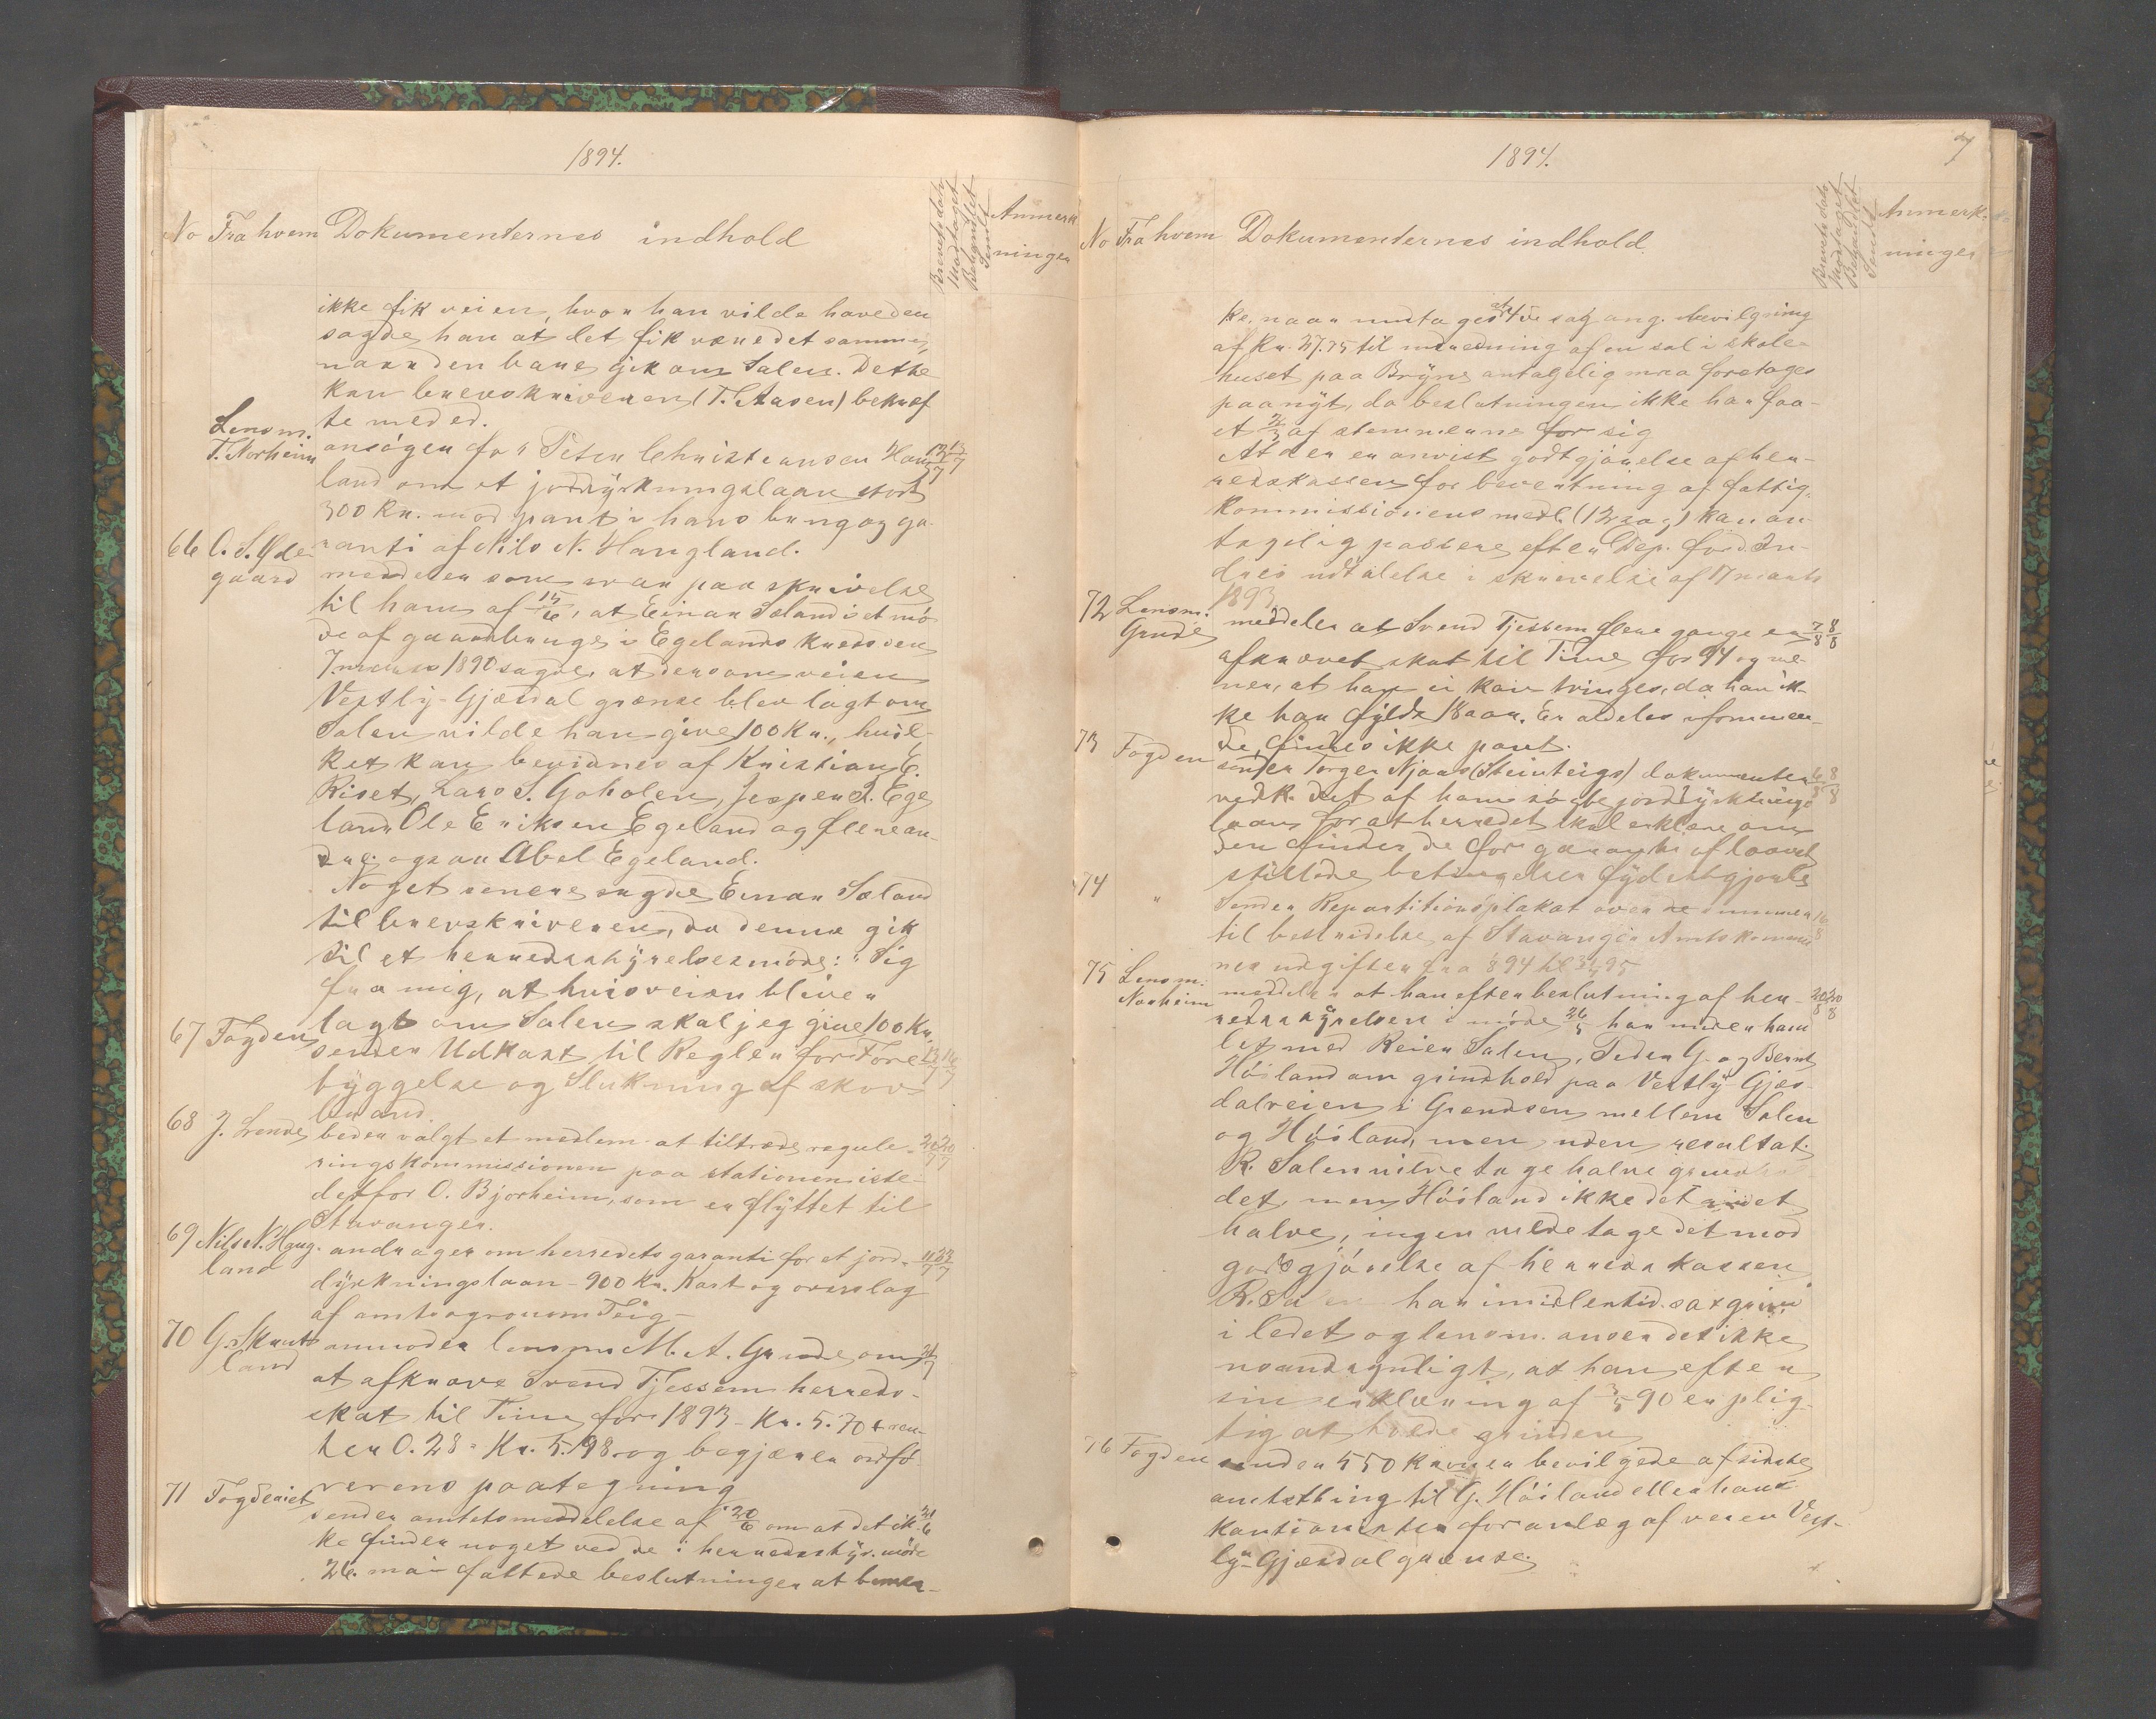 1894.
No Fra hvem Dokumenternes indhold
Brevets dato
Modtaget
Besvaret
Sendt
Anmerk
ninger
ikke fik veien, hvor han vilde have den
sagde han at det fik være det samme,
naar den bare gik om Salen. Dette
kan brevskriveren (T. Aasen) bekræf
te med ed.
Lensm.
T. Norheim
ansøger for Peter Christensen Haug 13/7 13/7
land om et jorddyrkningslaan stort
300 Kr. mod pant i hans brug og ga-
ranti af Nils N. Haugland.
66 O. S. Øde-
gaard
meddeler som svar paa skrivelse
til ham af 15/6, at Einar Sæland i et mø-
de af gaardbruger i Egelands kreds den
7. marts 1890 sagde, at dersom veien
Vestly-Gjesdal grænse blev lagt om
Salen vilde han give 100 Kr., hvil-
ket kan bevidnes af Kristian E.
Riset, Lars S. Gaholen, Jesper I. Ege
land, Ole Eriksen Egeland og flere an-
dre, ogsaa Abel Egeland.
Noget senere sagde Einar Sæland
til brevskriveren, da denne gik
til et herredsstyrelsesmøde: "Sig
fra mig, at hvis veien bliver
lagt om Salen skal jeg give 100 Kr.
67 Fogden
sender Udkast til Regler for Fore- 13/7 16/7
byggelse og Slukning af skov-
brand.
68 J. Lende
beder valgt et medlem at tiltræde regule- 20/7 20/7
ringskommissionen paa stationen iste-
detfor O. Bjorheim, som er flyttet til
Stavanger.
69 Nils N. Haug-
land
andrager om herredets garanti for et jord- 11/7 23/7
dyrkningslaan - 900 Kr. Kart og overslag
af amtsagronom Teig -
70 G. Skrut-
land
anmoder lensm. M. A. Grude om
at afkræve Svend Tjessem herreds-
skat til Time for 1893 - Kr. 5.70 + ren-
ter 0.28 = Kr. 5.98 og begjærer ordfø-
rerens paategning
71 Fogderiet
sender amtets meddelelse af 20/6 om at det ik-
ke finder noget ved de i herredsstyr. møde
26. mai fattede beslutninger at bemer-
1894.
7
No Fra hvem Dokumenternes indhold.
Brevets dato
Modtaget
Besvaret
Sendt
Anmerk-
ninger
ke, naar undtages at sag ang. bevilgning
af Kr. 27.75 til indredning af en sal i skole-
huset paa Bryne antagelig maa foretages
paanyt, da beslutningen ikke har faa-
et 2/3 af stemmerne for sig
At der er anvist godtgjørelse af her-
redskassen for bevertning af fattig-
kommissionens medl. (12 sag) kan an-
tagelig passere efter Dep. for d. In-
dres udtalelse i skrivelse af 17 marts
1893.
72 Lensm.
Grude
meddeler at Svend Tjessem flere gange er 7/8 8/8
afkrævet skat til Time for 94 og me-
ner, at han ei kan tvinges, da han ik-
ke har fyldt 18 aar. Er aldeles uformuen-
de, findes ikke pant.
73 Fogden
sender Torger Njaas (Steinteigs) dokumenter 6/8 8/8
vedk. det af ham søgte jorddyrknings
laan for at herredet skal erklære om
den finder de for garanti af laanet
stillede betingelser fyldestgjorte
74 "
sender Repartitionsplakat over de summer 16/8
til bestridelse af Stavanger Amtskommu
nes udgifter fra
75 Lensm.
Norheim
meddeler at han efter beslutning af her- 20/8 20/8
redsstyrelsen i møde 26/5 har under hand-
let med Reier Salen, Peder G. og Bernt
Høiland om grindhold paa Vestly-Gjes-
dalveien i Grendsen mellem Salen
og Høiland, men uden resultat.
R. Salen vilde tage halve grindhol
det, men Høiland ikke det andet
halve, ingen vilde tage det mod
godtgjørelse af herredskassen
R. Salen har imidlertid sat grind
i ledet og lensm. anser det ikke
usandsynligt, at han efter
sin erklæring af 3/5 90 er plig-
tig at holde grinden
76 Fogden
sender 550 Kroner bevilgede af sidste
amtsthing til G. Høiland eller hans
kautionister for anlæg af veien Vest-
ly-Gjesdal grænse.